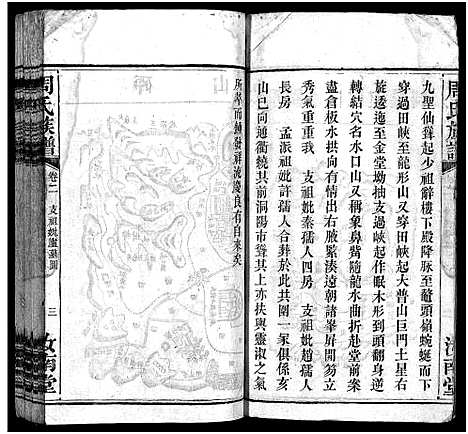 周氏族譜
九聖仙聳起少祖辭樓下殿降脈至鼇頭嶺蜿蜒而下
穿過田峽至龍形山又穿田峽起大普山巨門土星右
旋透迤至金堂坳抽支過峽起作眠木形到頭翻身逆
轉結穴名水口山又稱象鼻嘴隨龍水曲折赴堂前案
盡倉板水拱向有情右腋緊湊遠朝諸峯屏開帳列
秀氣重重我 支祖妣秦孺人四房 支祖妣趙孺人
長房 孟派祖妣許孺人合葬於此共圍一冢俱係亥
山巳向通衢繞其前洞陽市聳其上亦扶輿靈淑之氣
所萃而鍾發祥流慶良有自來矣
周氏族譜
卷二
支祖妣廬墓圖
三
汝南堂